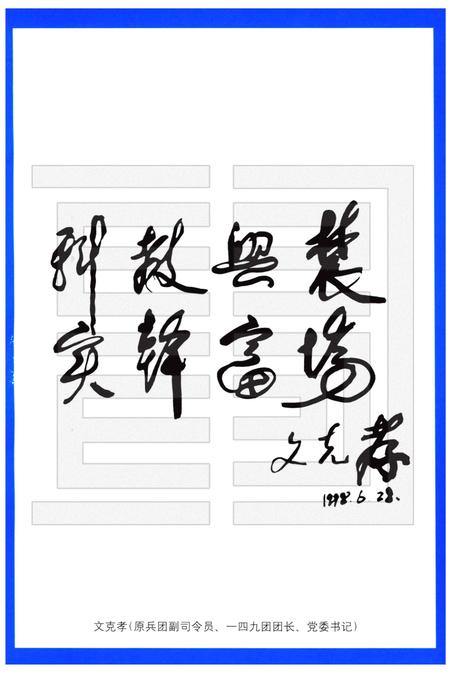 科教興農
实幹富場
文克孝
1998.6.28.
文克孝(原兵团副司令员、一四九团团长、党委书记)